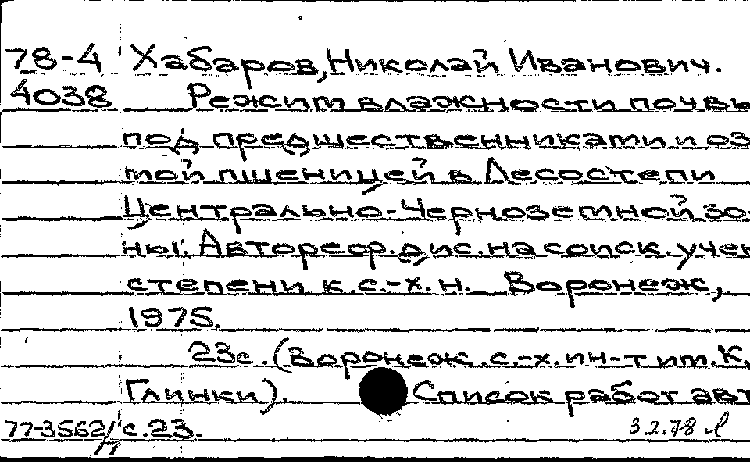 78-4 Хабаров, Николай Иванович.
4038 Режим влажности почвы
под предшественниками и оз
мой пшеницей в Лесостепи
Центрально-Черноземной зо-
ны. Автореф. дис. на соиск. учен
степени к.с.-х.н. Воронеж,
1975.
23с. (Воронеж. с.-х. ин-т им. К.
Глинки). Список работ авт
77-3562/ с.23. 3 2.78